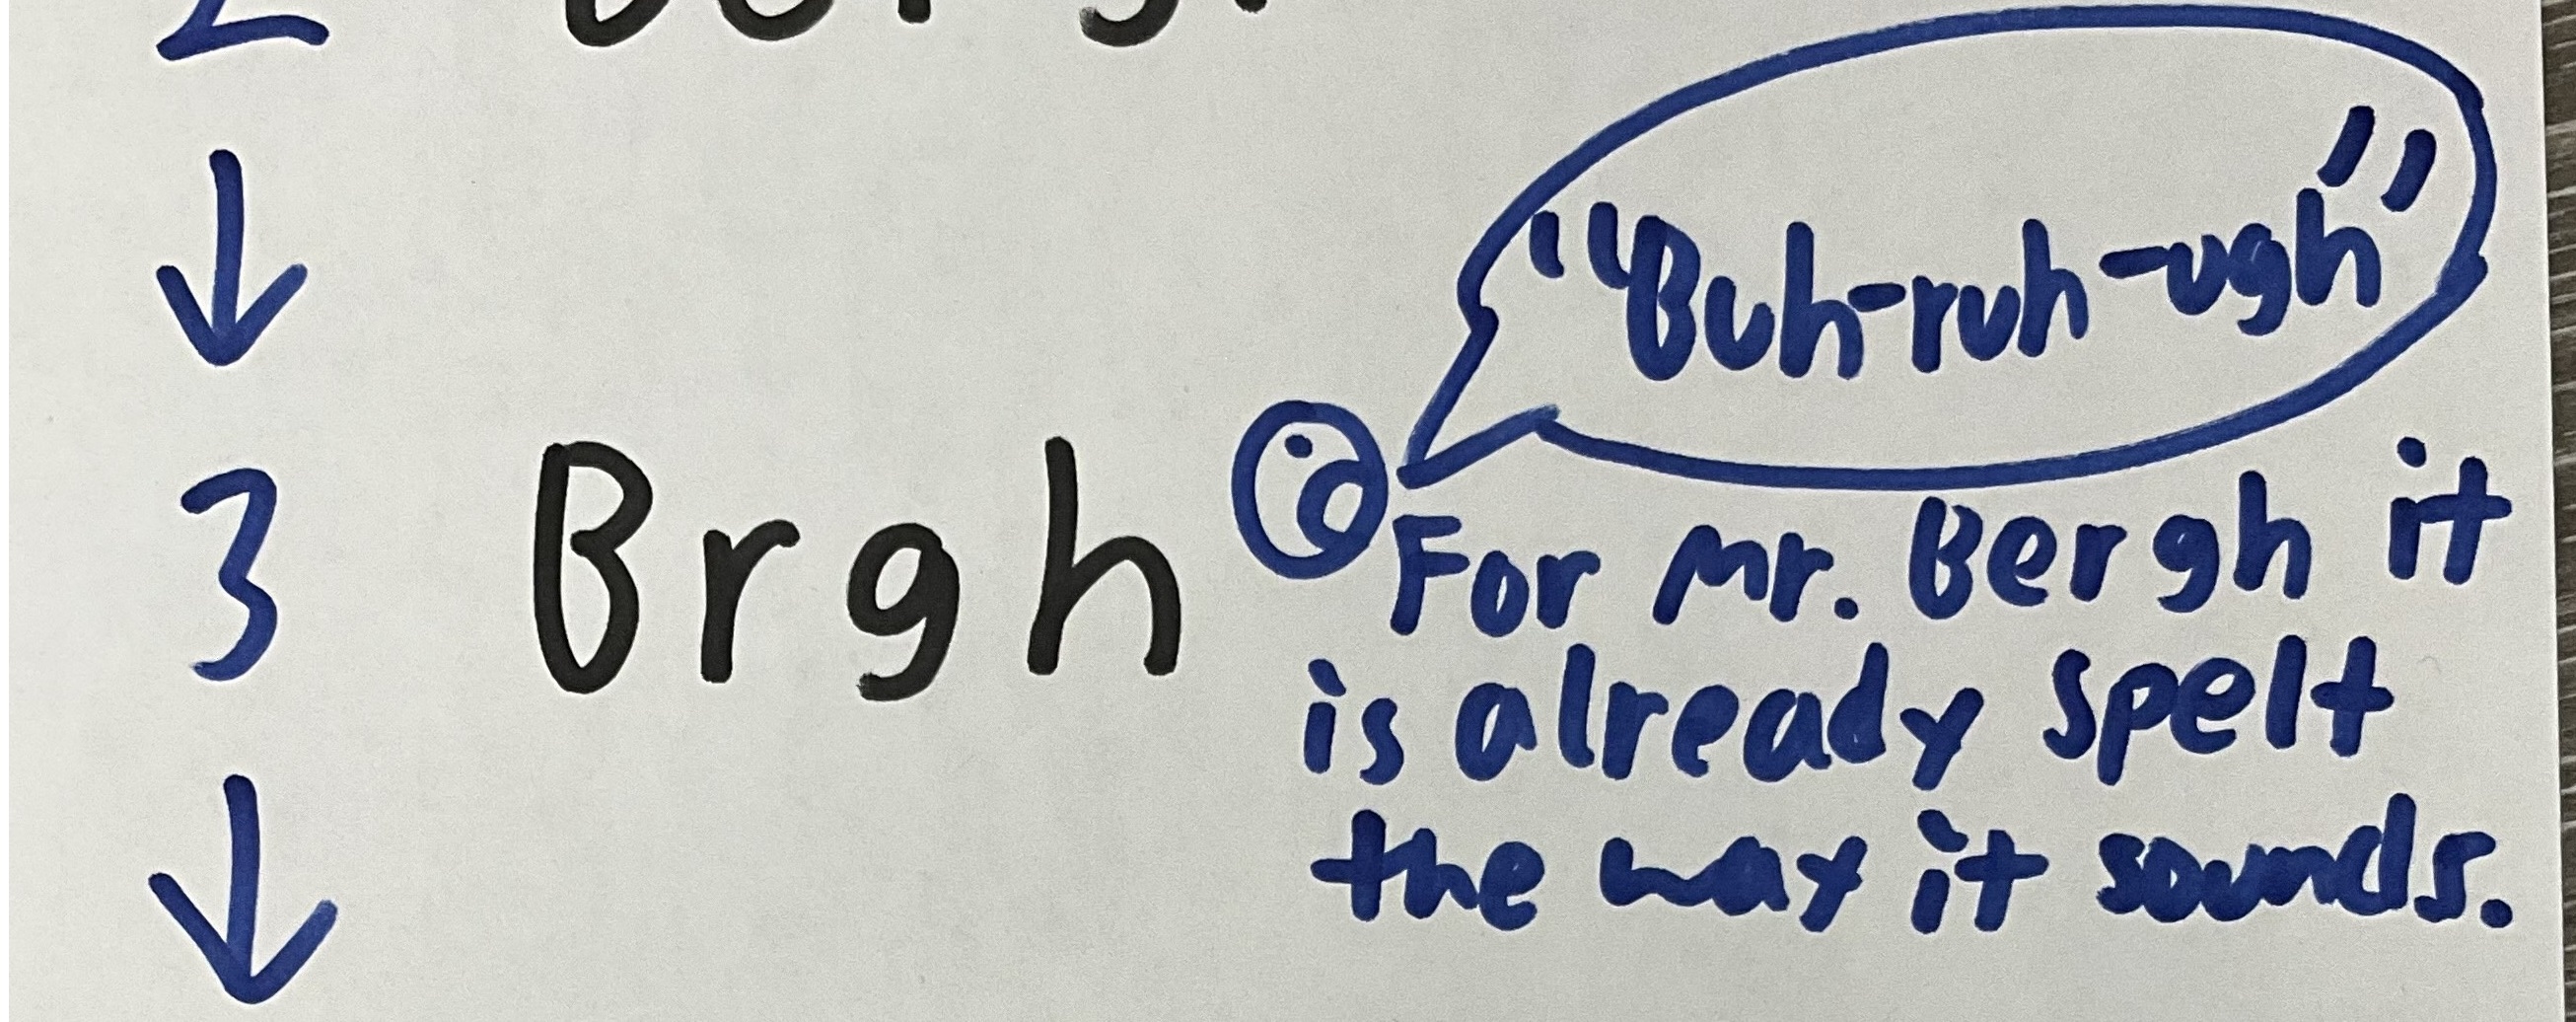 2
"Buh-ruh-ugh"
3 Brgh
For Mr. Bergh it
is already spelt
the way it sounds.